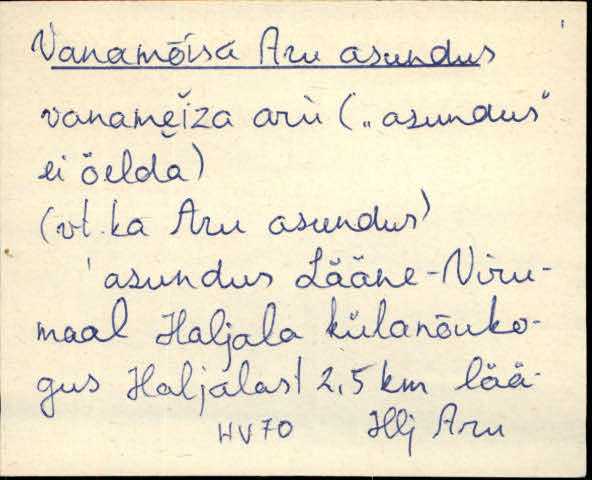 Vanamõisa Aru asundus
vanameiza arù̬ („asundus"
ei öelda)
(vt. ka Aru asundus)
asundus Lääne-Viru-
maal Haljala külanõuko-
gus Haljalast 2,5 km lää-
HV70 Hlj Aru